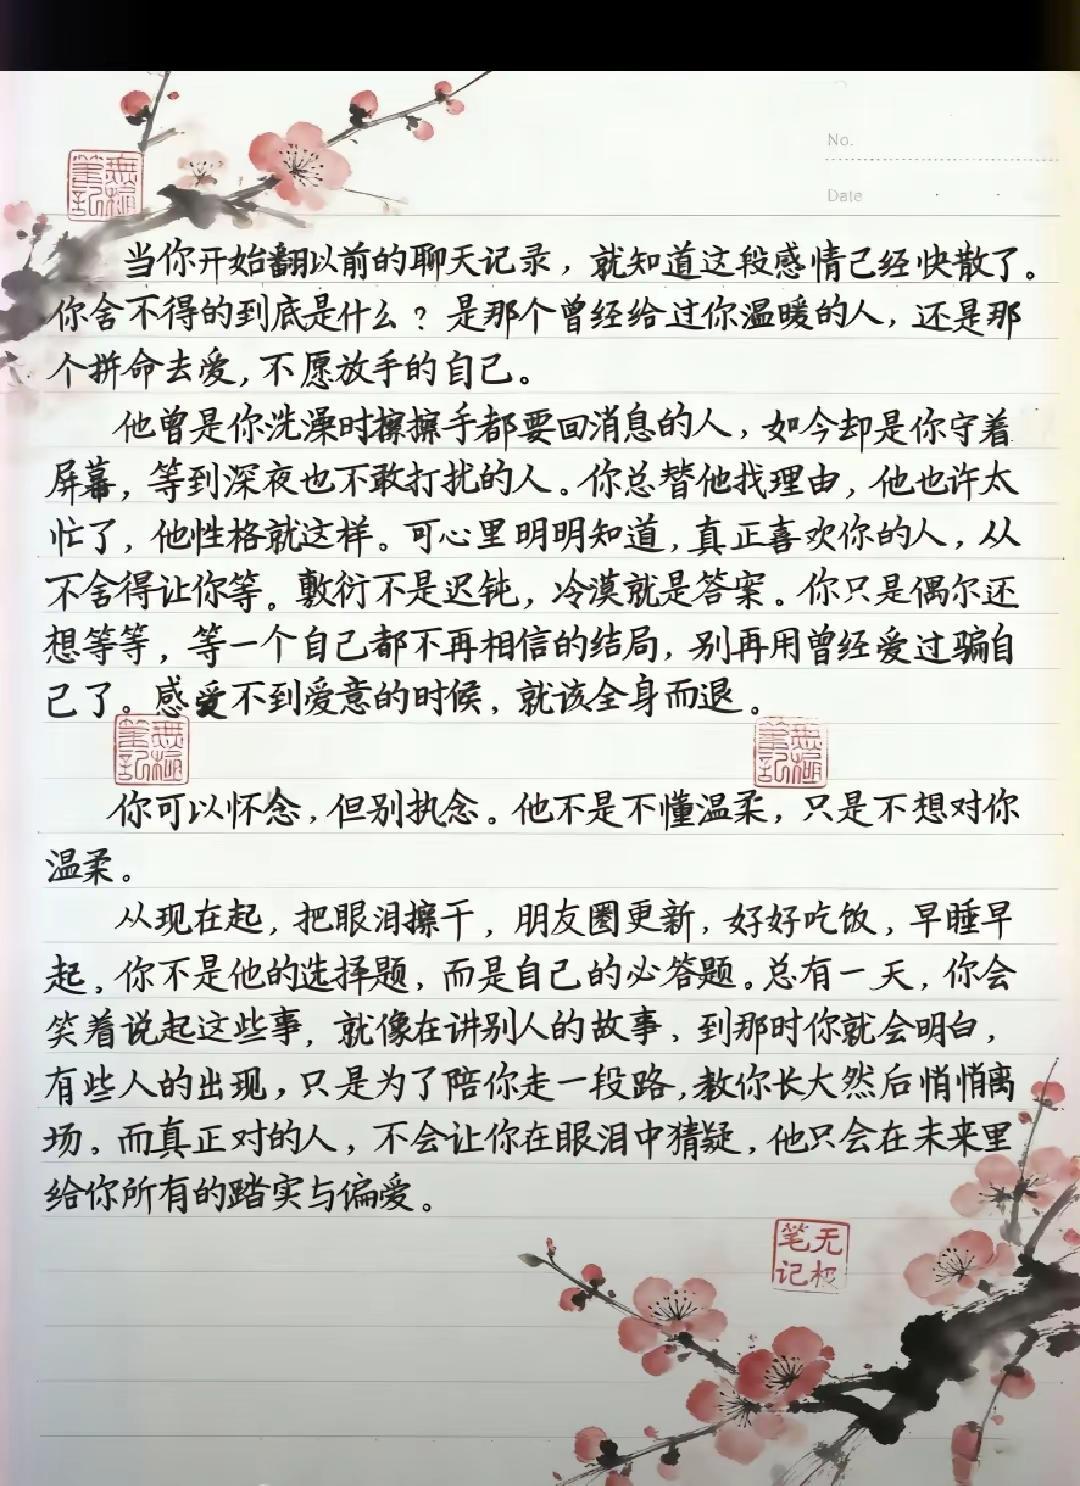 No.
無極
筆記
Date
当你开始翻以前的聊天记录，就知道这段感情已经快散了。
你舍不得的到底是什么？是那个曾经给过你温暖的人，还是那
个拼命去爱，不愿放手的自己。
他曾是你洗澡时擦擦手都要回消息的人，如今却是你守着
屏幕，等到深夜也不敢打扰的人。你总替他找理由，他也许太
忙了，他性格就这样。可心里明明知道，真正喜欢你的人，从
不舍得让你等。敷衍不是迟钝，冷漠就是答案。你只是偶尔还
想等等，等一个自己都不再相信的结局，别再用曾经爱过骗自
己了。感受不到爱意的时候，就该全身而退。
無極
筆記
無極
筆記
你可以怀念，但别执念。他不是不懂温柔，只是不想对你
温柔。
从现在起，把眼泪擦干，朋友圈更新，好好吃饭，早睡早
起。你不是他的选择题，而是自己的必答题。总有一天，你会
笑着说起这些事，就像在讲别人的故事，到那时你就会明白，
有些人的出现，只是为了陪你走一段路，教你长大然后悄悄离
场。而真正对的人，不会让你在眼泪中猜疑，他只会在未来里
给你所有的踏实与偏爱。
无极
笔记